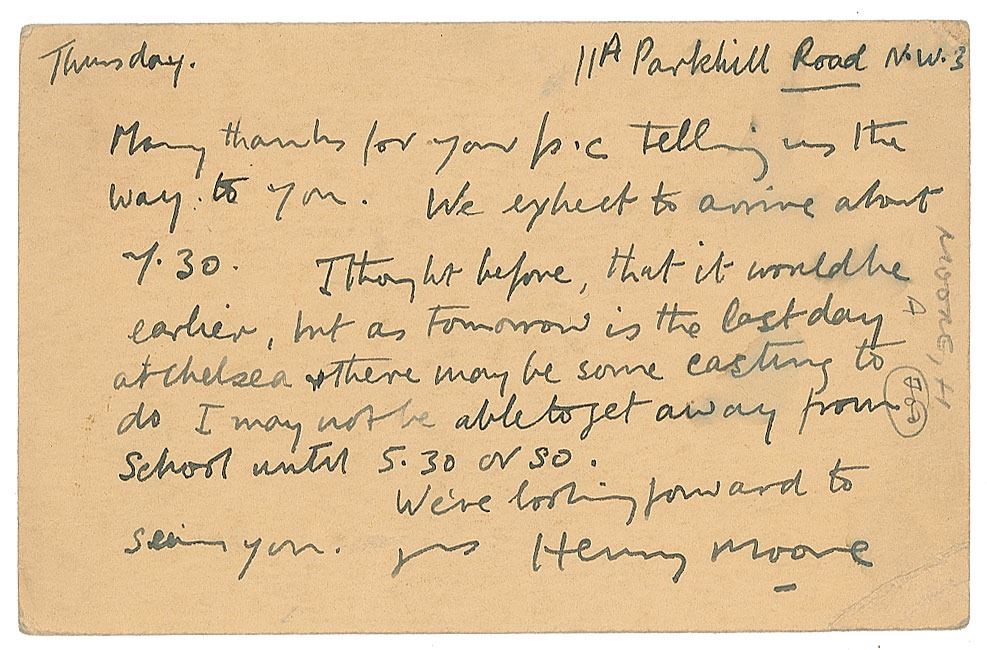 Thursday. 11A Parkhill Road N.W.3
Many thanks for your p.c telling us the
way. to you. We expect to arrive about
7.30. I thought before, that it would be
earlier, but as tomorrow is the last day
at Chelsea & there may be some casting to
do I may not be able to get away from
School until 5.30 or so.
We're looking forward to
seeing you. yrs Henry Moore
MOORE, H
A